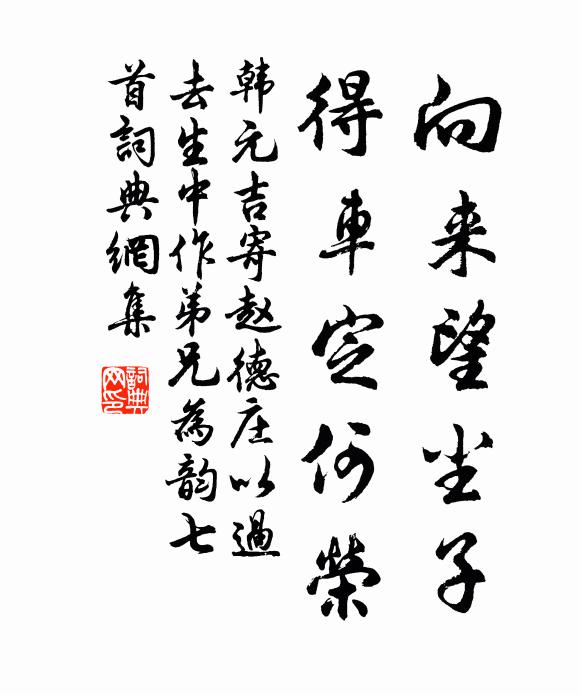 向来望尘子
得車定何榮
韩元吉寄赵德庄以過
去生中作弟兄為韵七
首詞典網集
詞典
网印